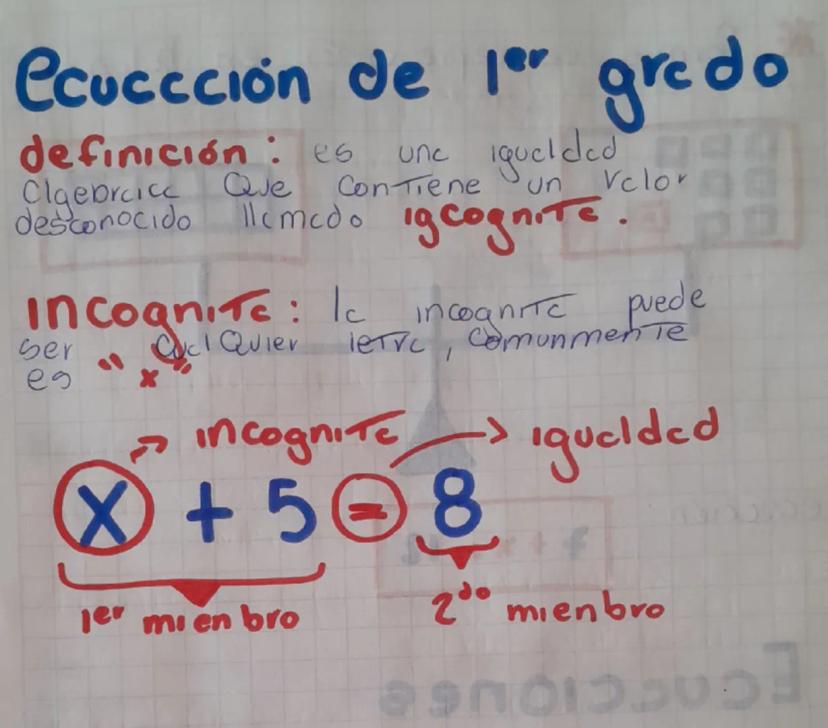 ecuaccción de 1er grado
definición: es una igualdad
algebraica que contiene un valor
desconocido llamado igcognita.
incognita: la incognita puede
ser cualquier letra, comunmente
es "x"
incognita igualdad
x + 5 = 8
1er mienbro 2do mienbro
Ecucciones